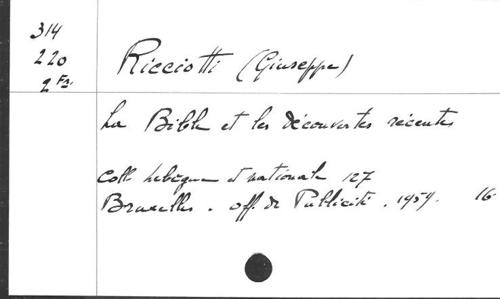 314
220
2 Fr.
Ricciotti (Giuseppe)
La Bible et les Découvertes récentes
Coll. Lebègue et nationale 127
Bruxelles. Off. de Publicité. 1959. 16